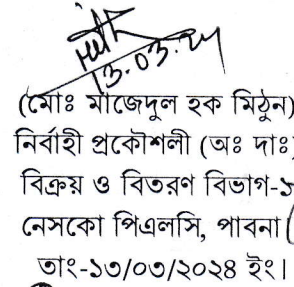 13.03.24
(মোঃ মাজেদুল হক মিঠুন)
নির্বাহী প্রকৌশলী (অঃ দাঃ)
বিক্রয় ও বিতরণ বিভাগ-১
নেসকো পিএলসি, পাবনা
তাং-১৩/০৩/২০২৪ ইং।